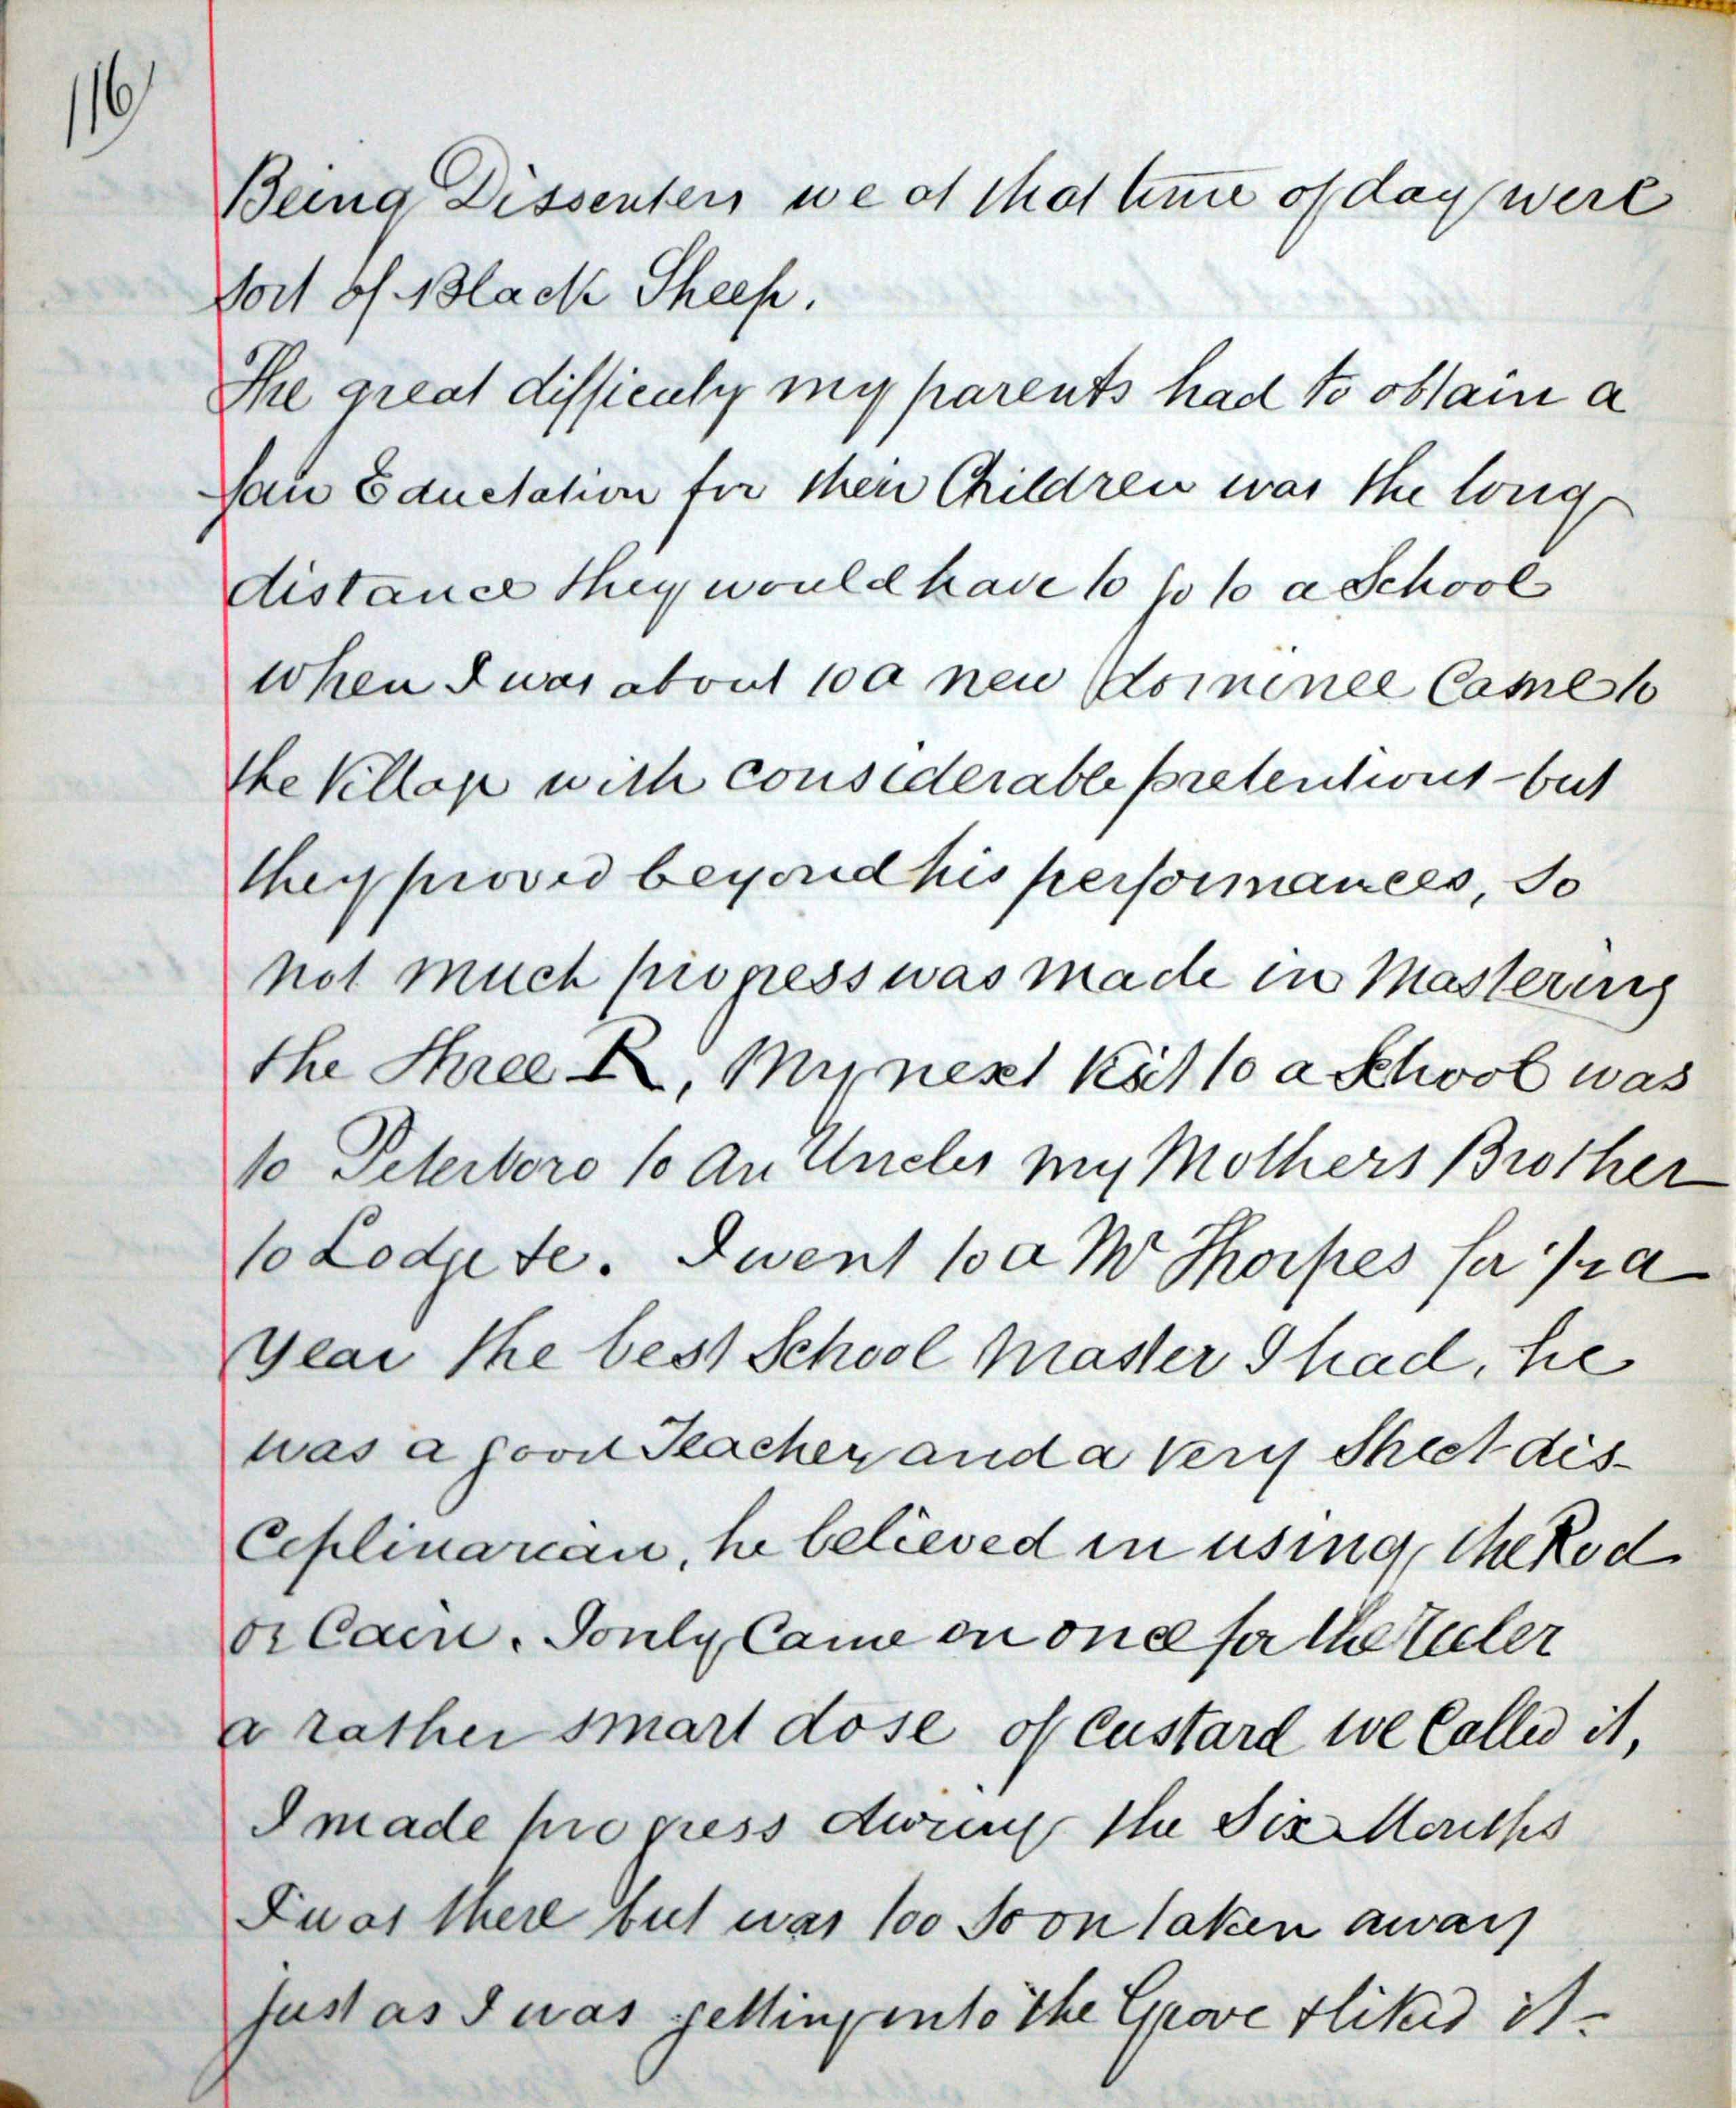 116
Being Dissenters we at that time of day were
sort of Black Sheep.
The great difficulty my parents had to obtain a
fair Eductation for their Children was the long
distance they would have to go to a School
when I was about 10 a new dominee Came to
the Village with considerable pretentions - but
they proved beyond his performances, So
not much progress was made in Mastering
the Three R, My next to a School was
to Peterboro to an Uncles my Mothers Brother
to Lodge te. I went to a Mr Thorpes for 1/2 a
year the best School Master I had, he
was a good Teacher and a very Strict dis-
ciplinarian, he believed in using the Rod
or Cain. I only Came in once for the
a rather smart dose of Custard we Called it,
I made progress during the Six Months
I was there but was too soon taken away
just as I was getting into the Grove & liked it -